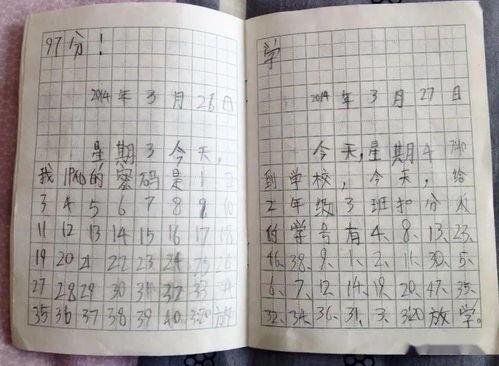 97分！
2014年3月26日
星期3今天，
我IPAD的密码是1 2
3 4 5 6 7 8 9 10
11 12 13 14 15 16 17 18
19 20 21 22 23 24 25 26
27 28 29 30 31 32 33 34
35 36 37 38 39 40 320放
学
2014年3月27日
今天，星期4 740
到学校，今天，给
2年级3班扣分人
的学号有4、8、13、23、
46、38、9、1、2、11、30、5、
6、7、12、14、19、20、47、35、
32、34、36、31、3、320放学。